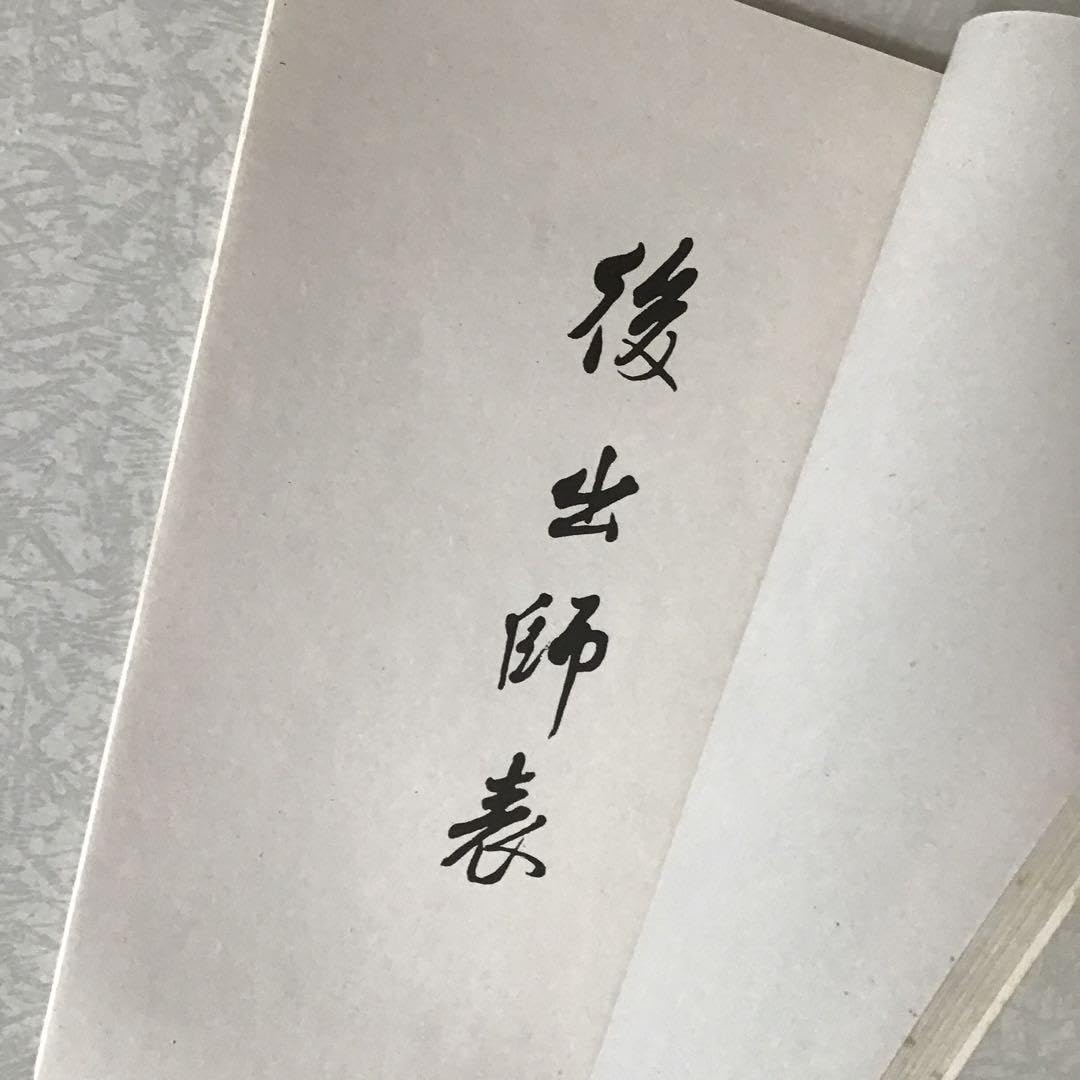 後出師表